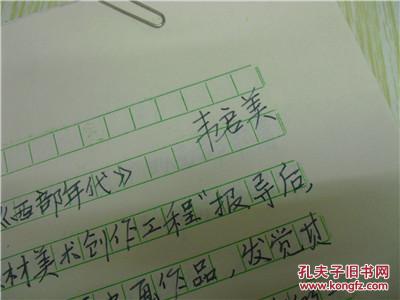 韦启美
《西部年代》
材美术创作工程"报导后,
原作品,发觉其
孔夫子旧书网
www.kongfz.com